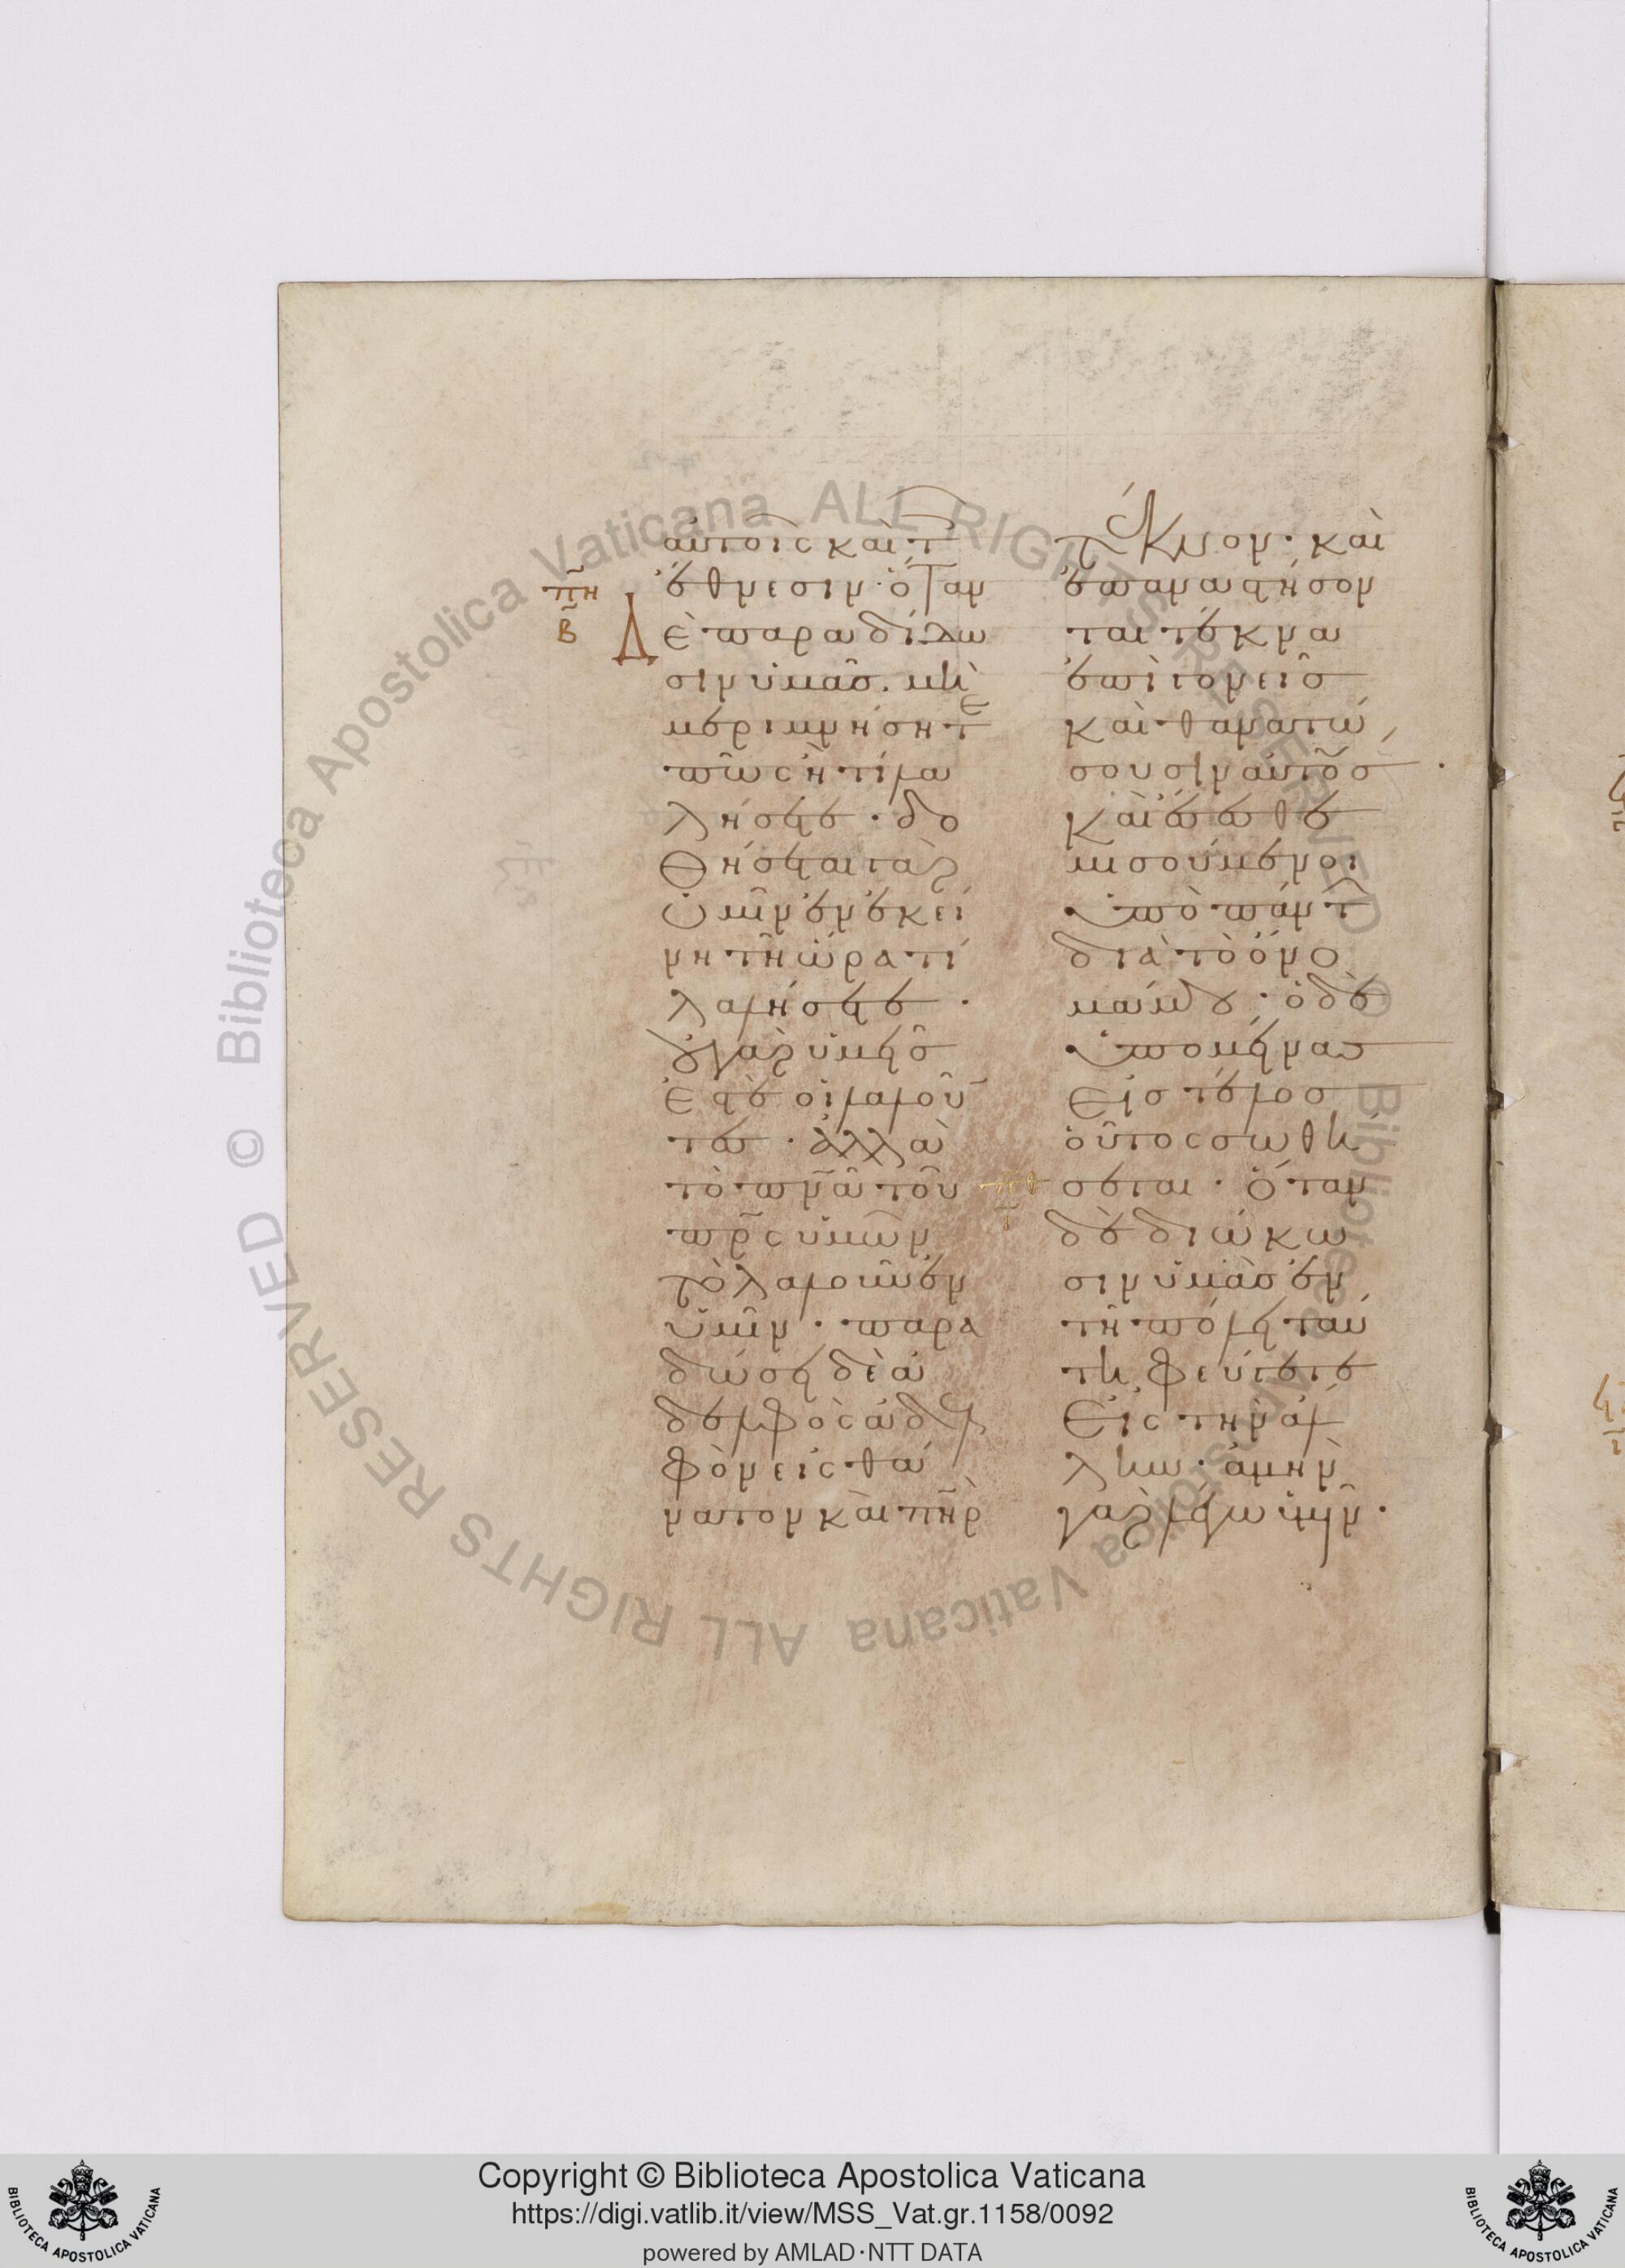 αὐτοῖς καὶ τ
ἔθνεσιν· ὅταν
πη
β
Δ
ὲ παραδίδω
σιν ὑμᾶσ. μὴ
μεριμνήσητε
πῶς ἢ τί λα
λήσητε· δο
θήσεται γὰρ
ὑμῖν ἐν ἐκεί
νη τῆ ὥρα τί
λαλήσετε·
οὐ γὰρ ὑμεῖσ
ἐστὲ οἱ λαλοῦν
τεσ· ἀλλὰ
τὸ πνα τοῦ
πρς ὑμῶν
τὸ λαλοῦν ἐν
ὑμῖν· παρα
δώσει δὲ ἀ
δελφὸς ἀδελ
φὸν εἰς θά
νατον καὶ πηρ
τέκνον· καὶ
ἐπαναστήσον
ται τέκνα
ἐπὶ γονεῖσ
καὶ θανατώ
σουσιν αὐτούσ.
καὶ ἔσεσθε
μισούμενοι
ὑπὸ πάντ
διὰ τὸ ὄνο
μά μου· ὁ δὲ
ὑπομείνασ
εἰσ τέλοσ
οὗτος σωθή
πθ
σεται· ὅταν
δὲ διώκω
σιν ὑμᾶσ ἐν
τῆ πόλει ταύ
τη φεύγετε
εἰς τὴν ἄλ
λην· ἀμὴν
γὰρ λέγω ὑμῖν·
Copyright © Biblioteca Apostolica Vaticana
https://digi.vatlib.it/view/MSS_Vat.gr.1158/0092
powered by AMLAD·NTT DATA
© Biblioteca Apostolica Vaticana ALL RIGHTS RESERVED
© Biblioteca Apostolica Vaticana ALL RIGHTS RESERVED
BIBLIOTECA APOSTOLICA VATICANA
BIBLIOTECA APOSTOLICA VATICANA